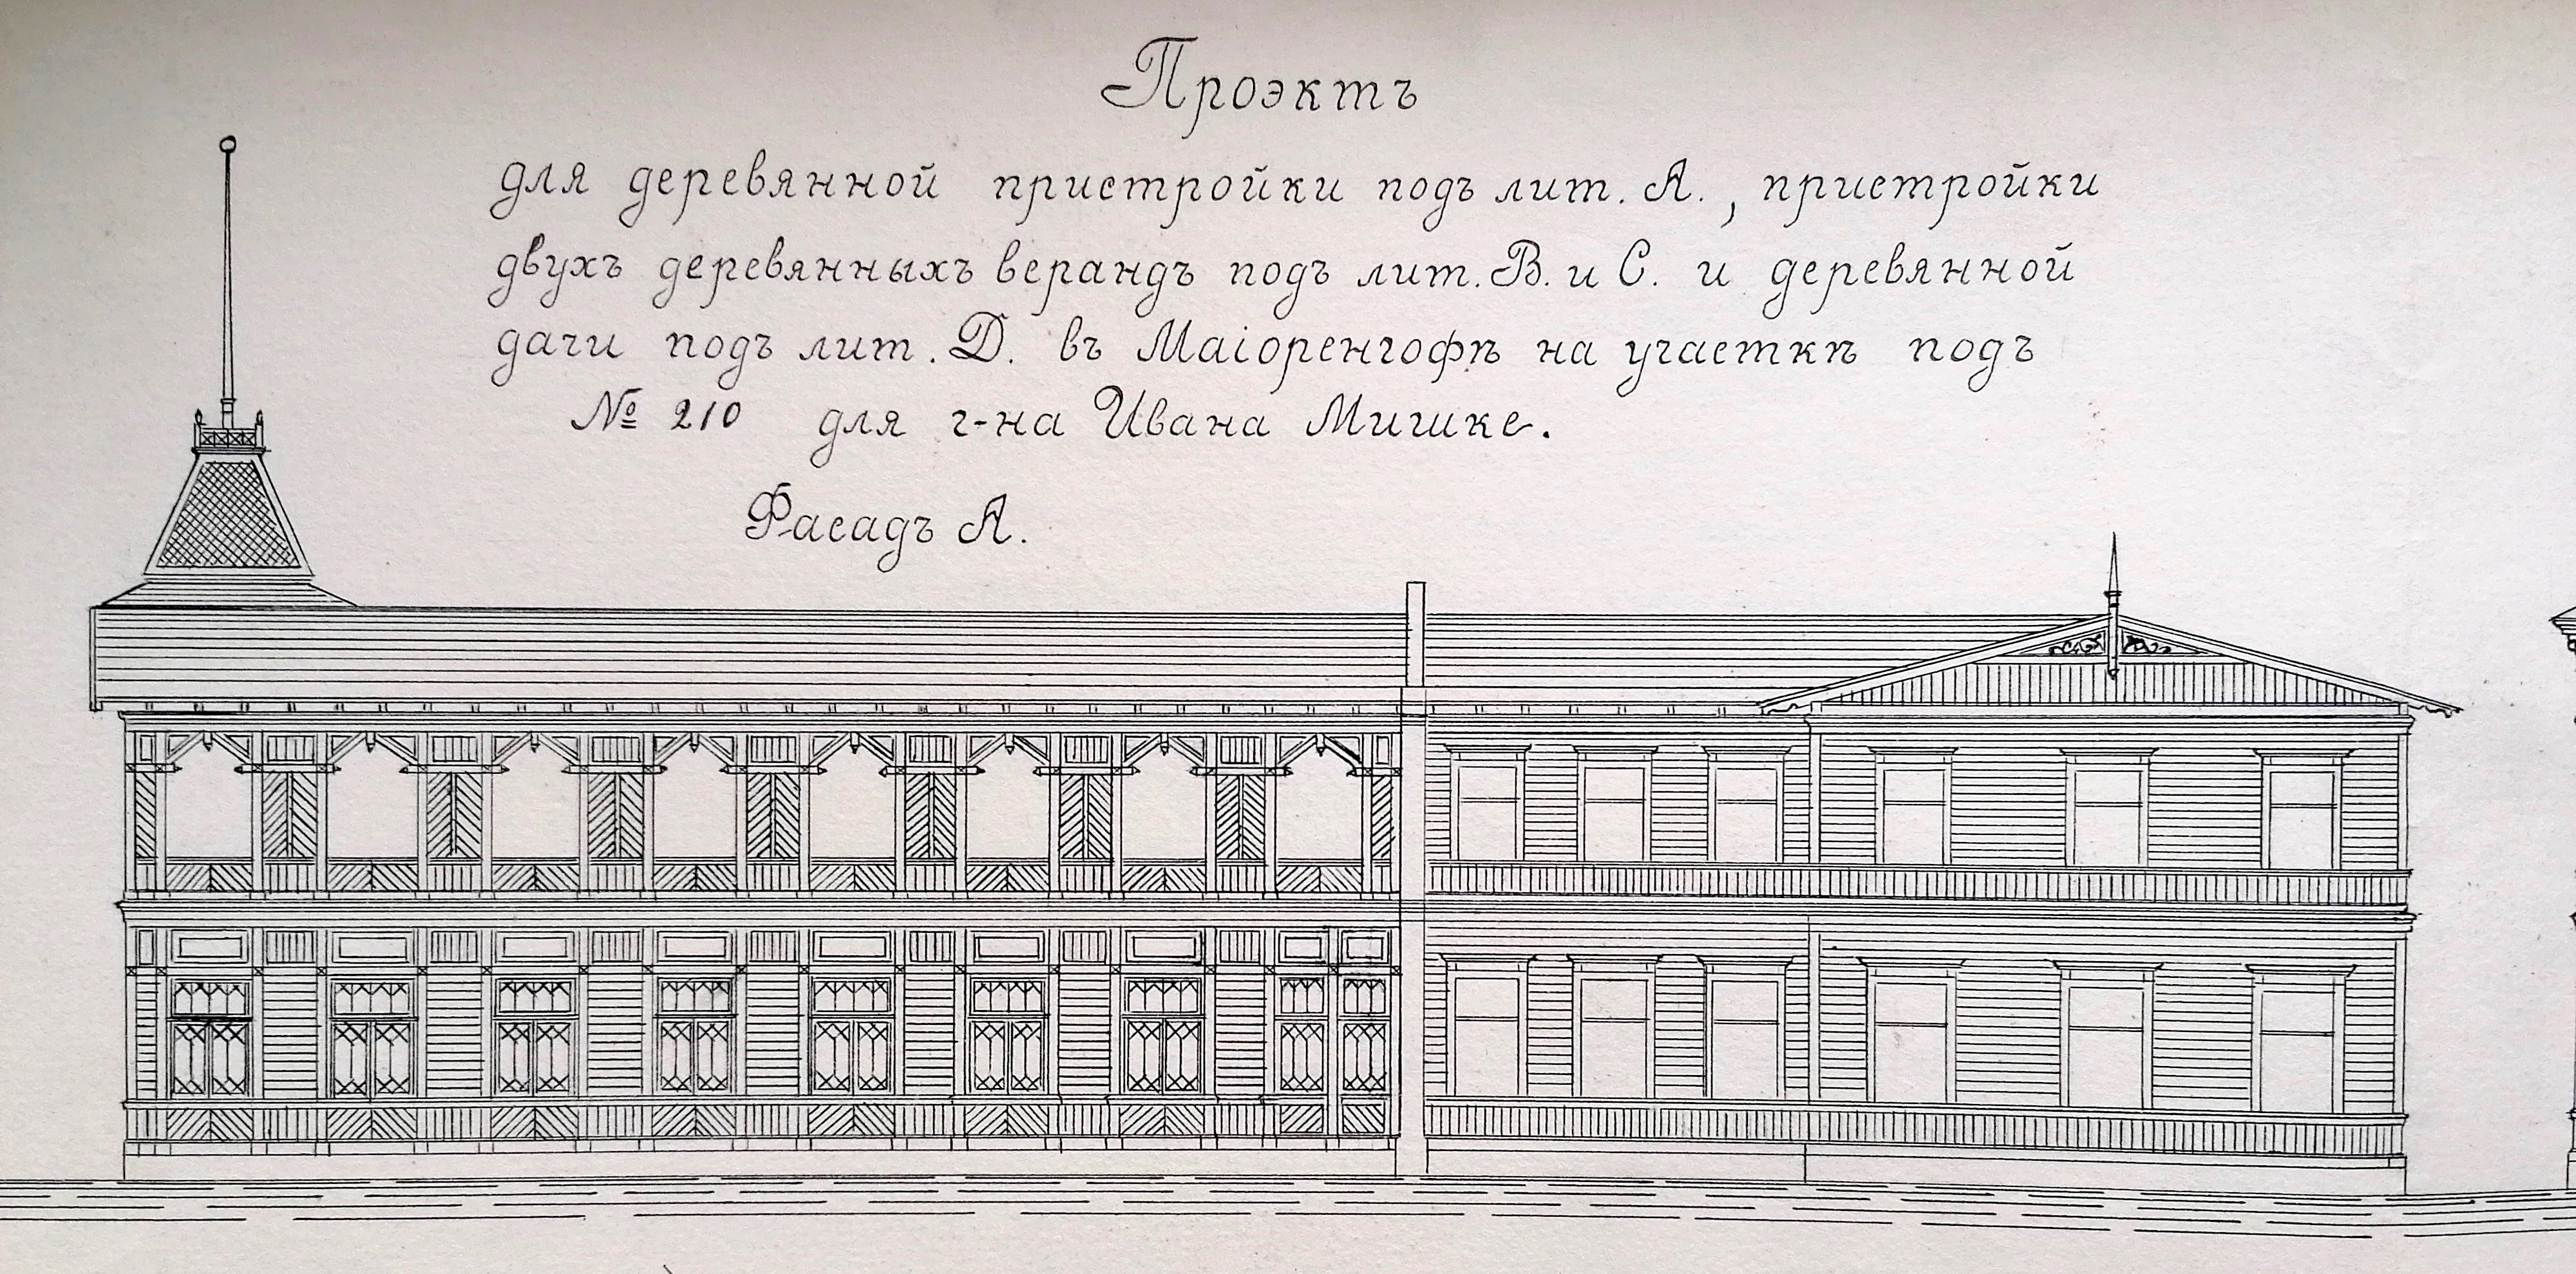 Проэктъ
для деревянной пристройки подъ лит. А., пристройки
двухъ деревянныхъ верандъ подъ лит. В. и С. и деревянной
дачи подъ лит. Д. въ Маіоренгофѣ на участкѣ подъ
№ 210 для г-на Ивана Мишке.
Фасадъ А.